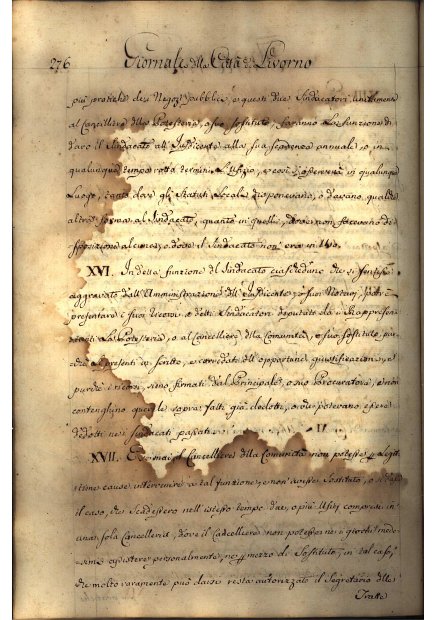 276 Giornale della Città di Livorno
più pratiche dei Negozi pubblici, e questi due Sindacatori unitamente
al Cancelliere della Potesteria, o suo sostituto, faranno la funzione di
dare il Sindacato all Jusdicente alla sua scadenza annuale, o in
qualunque tempo termini l'Ufizio, e così si osserverà in qualunque
Luogo, tanto dove gli Statuti Locali disponevano, o davano qualche
altra forma al Sindacato, quanto in quelli, dove non facevano di=
sposizione alcuna, o dove il Sindacato non era in uso.
XVI. In detta funzione del Sindacato ciascheduno che si sentisse
aggravato dall'Amministrazione dell Jusdicente, o suoi Notari, potrà
presentare i suoi ricorsi a detti Sindacatori deputati da i Rappresen=
tanti la Potesteria, o al Cancelliere della Comunità, o suo sostituto, pur=
chè si presenti in scritto, e corredati dell opportune giustificazioni, e
purchè i ricorsi sieno firmati dal Principale, o suo Procuratore, e non
contenghino querele sopra fatti già dedotti, o che potevano essere
dedotti nei sindacati passati
XVII. E se mai il Cancelliere della Comunità non potesse p legit
time cause intervenire a tal funzione, e non avesse Sostituto, o se
il caso, che scadessero nell'istesso tempo due, o più Ufizj compresi in
una sola Cancelleria, dove il Cancelliere non potesse ne i giorni mede=
simi assistere personalmente, ne p mezzo di Sostituto, in tal caso,
che molto raramente può darsi resta autorizzato il Segretario delle
Tratte